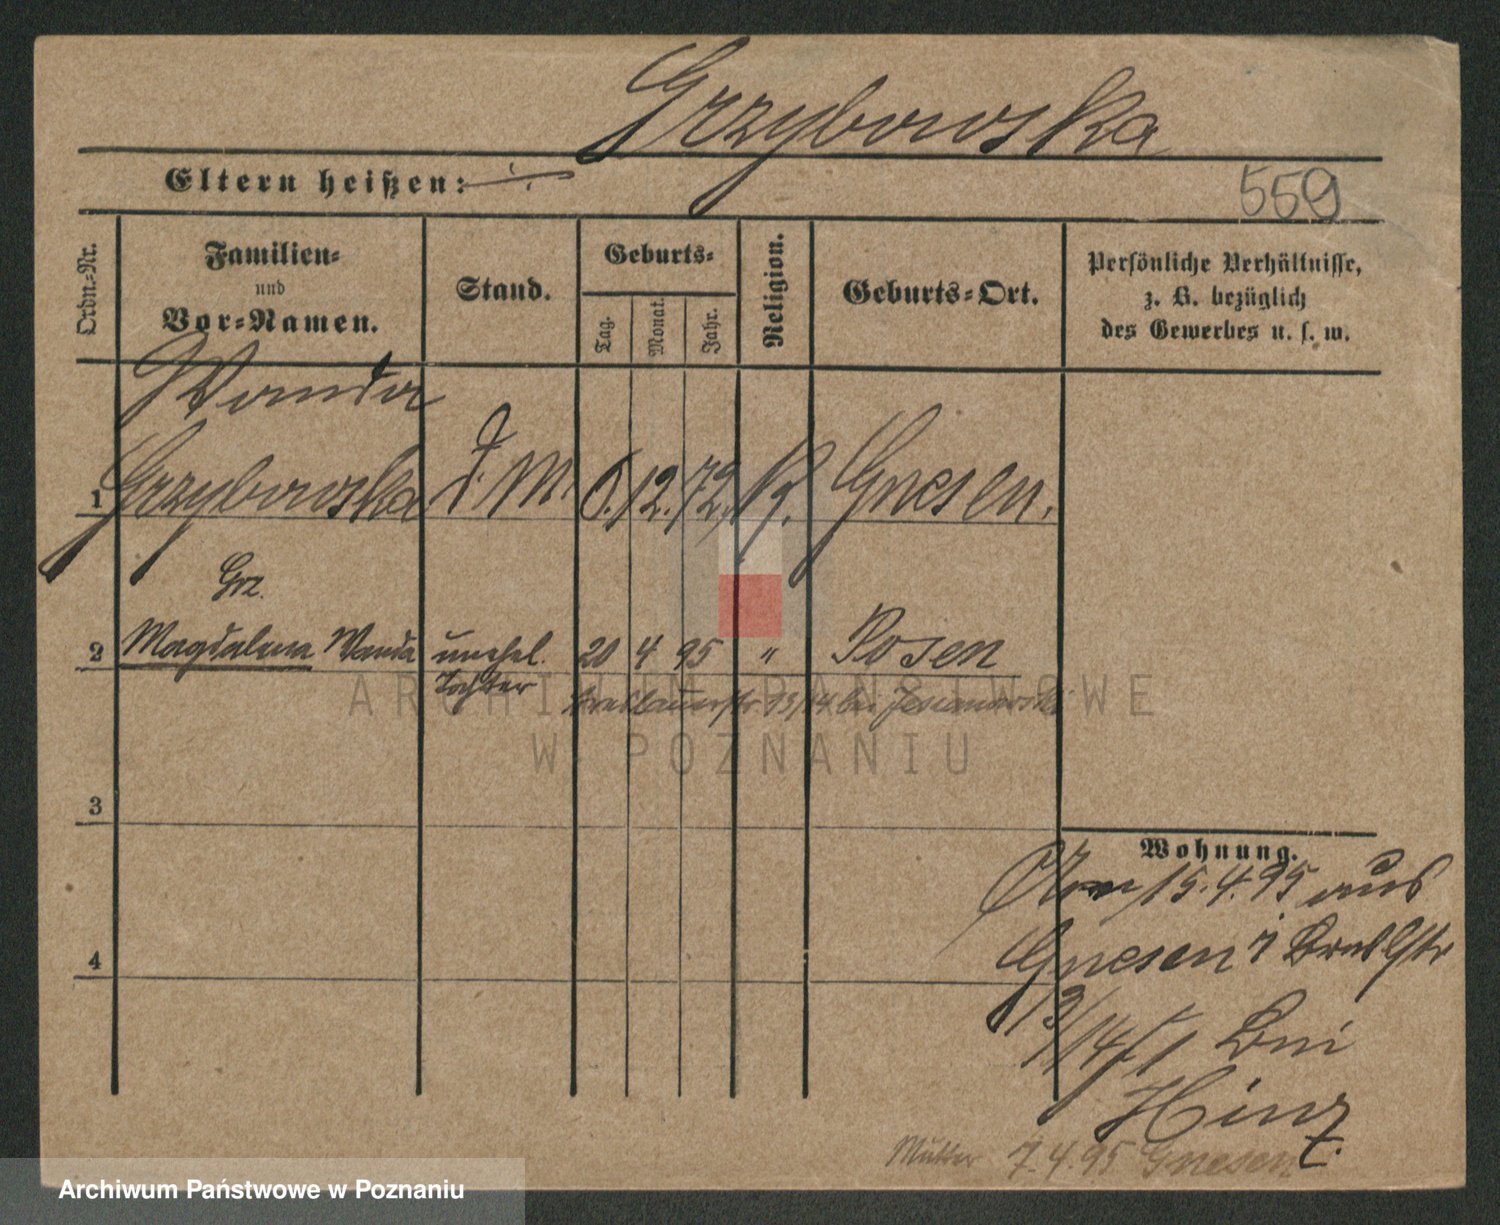 Grzybowska
Eltern heißen: ·/·
559
Ordn.-Nr.
Familien-
und
Vor-Namen.
Stand.
Geburts-
Tag.
Monat.
Jahr.
Religion.
Geburts-Ort.
Persönliche Verhältnisse,
z. B. bezüglich
des Gewerbes u. s. w.
Wanda
1 Grzybowska d. M. 6. 12. 72. K. Gnesen.
Grz.
2 Magdalena Wanda unehel. 20 4 95 " Posen
Tochter
13/14 bei
ARCHIWUM PAŃSTWOWE
W POZNANIU
3
Wohnung.
15.4.95 aus
Gnesen
4
13/14
bei
Hinz
Mutter 7.4.95 Gnesen
Archiwum Państwowe w Poznaniu